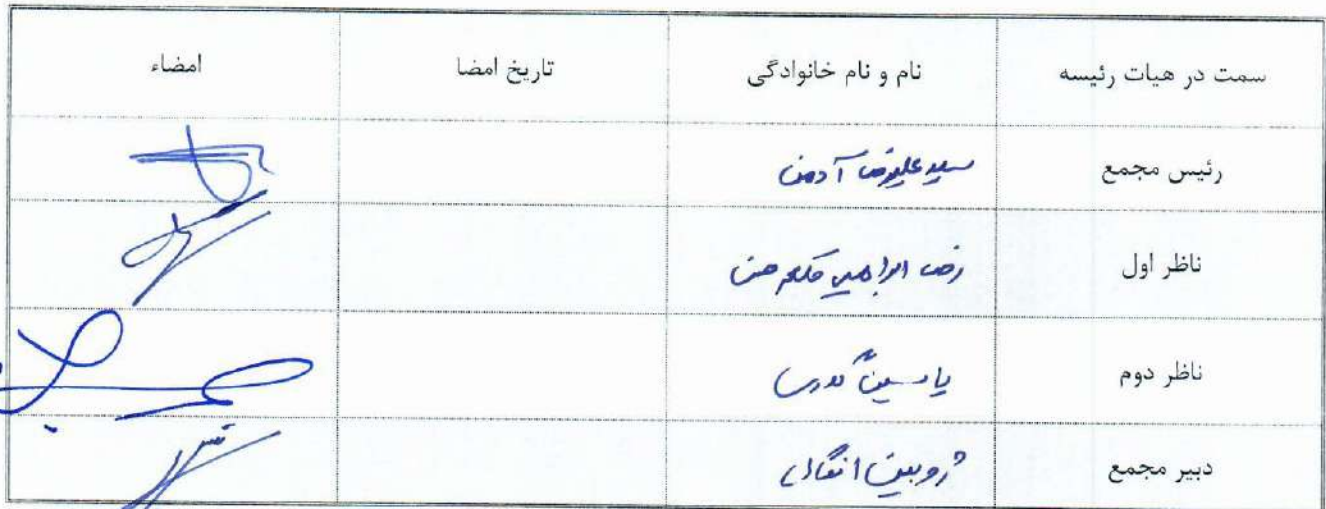 سمت در هیات رئیسه نام و نام خانوادگی تاریخ امضا امضاء
رئیس مجمع سید علیرضا
ناظر اول رضا ابراهیم
ناظر دوم یاسین
دبیر مجمع ژوبین